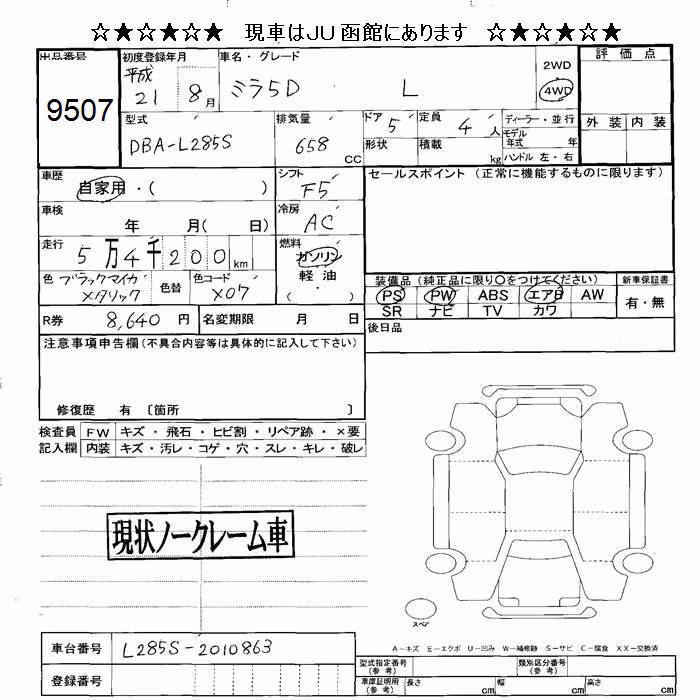 ☆★☆★☆★ 現車はJU函館にあります ☆★☆★☆★
出品番号 9507
初度登録年月 平成 21 8月
車名・グレード ミラ5D L
2WD
4WD
評価点
外装 内装
型式 DBA-L285S
排気量 658 CC
ドア 5 定員 4人
形状 積載 kg
ディーラー・並行
モデル年式 年
ハンドル 左・右
車歴 自家用・( )
シフト F5
セールスポイント (正常に機能するものに限ります)
車検 年 月( 日)
冷房 AC
走行 5万4千200km
燃料 ガソリン
軽油
・( )
色 ブラックマイカ メタリック 色替 色コード X07
装備品 (純正品に限り〇をつけてください) 新車保証書
PS PW ABS エアB AW 有・無
SR ナビ TV カワ
R券 8,640円 名変期限 月 日
後日品
注意事項申告欄(不具合内容等は具体的に記入して下さい)
修復歴 有 〔箇所 〕
検査員 FW キズ・飛石・ヒビ割・リペア跡・×要
記入欄 内装 キズ・汚レ・コゲ・穴・スレ・キレ・破レ
現状ノークレーム車
スペア
A-キズ E-エクボ U-凹み W-補修跡 S-サビ C-腐食 XX-交換済
車台番号 L285S-2010863
登録番号
型式指定番号(参考) 類別区分番号(参考)
車庫証明用(参考) 長さ cm 幅 cm 高さ cm